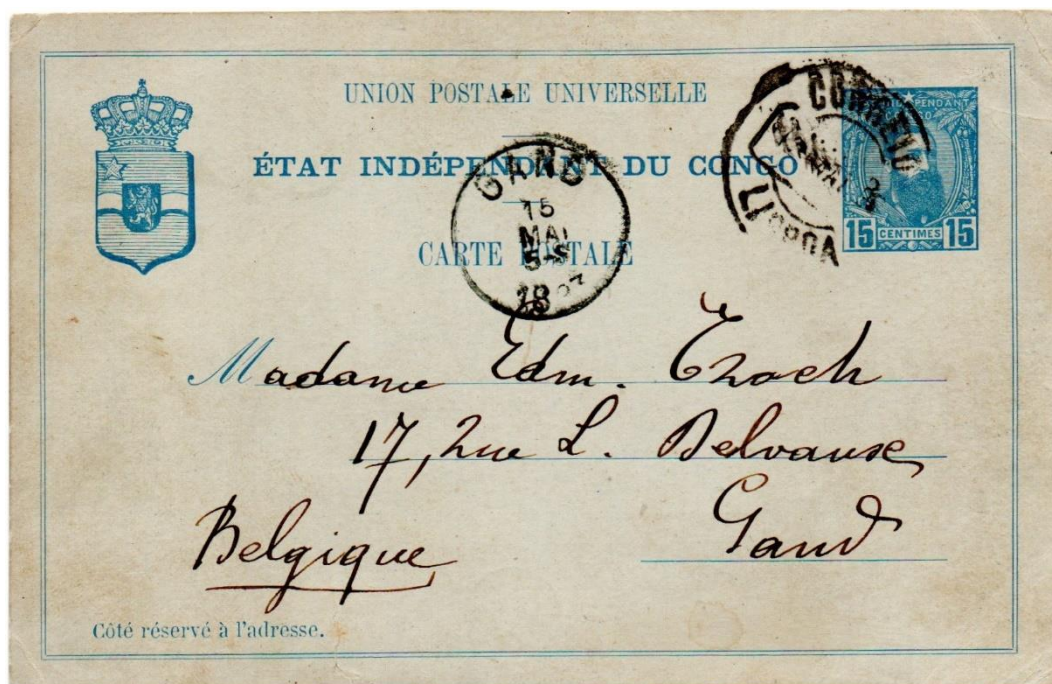 UNION POSTALE UNIVERSELLE
ÉTAT INDÉPENDANT DU CONGO
CARTE POSTALE
CORREIO
LISBOA
15 CENTIMES 15
GAND
15
MAI
5-S
18
Madame Edm. Tzoch
17, rue L. Delvaux
Gand
Belgique
Côté réservé à l'adresse.